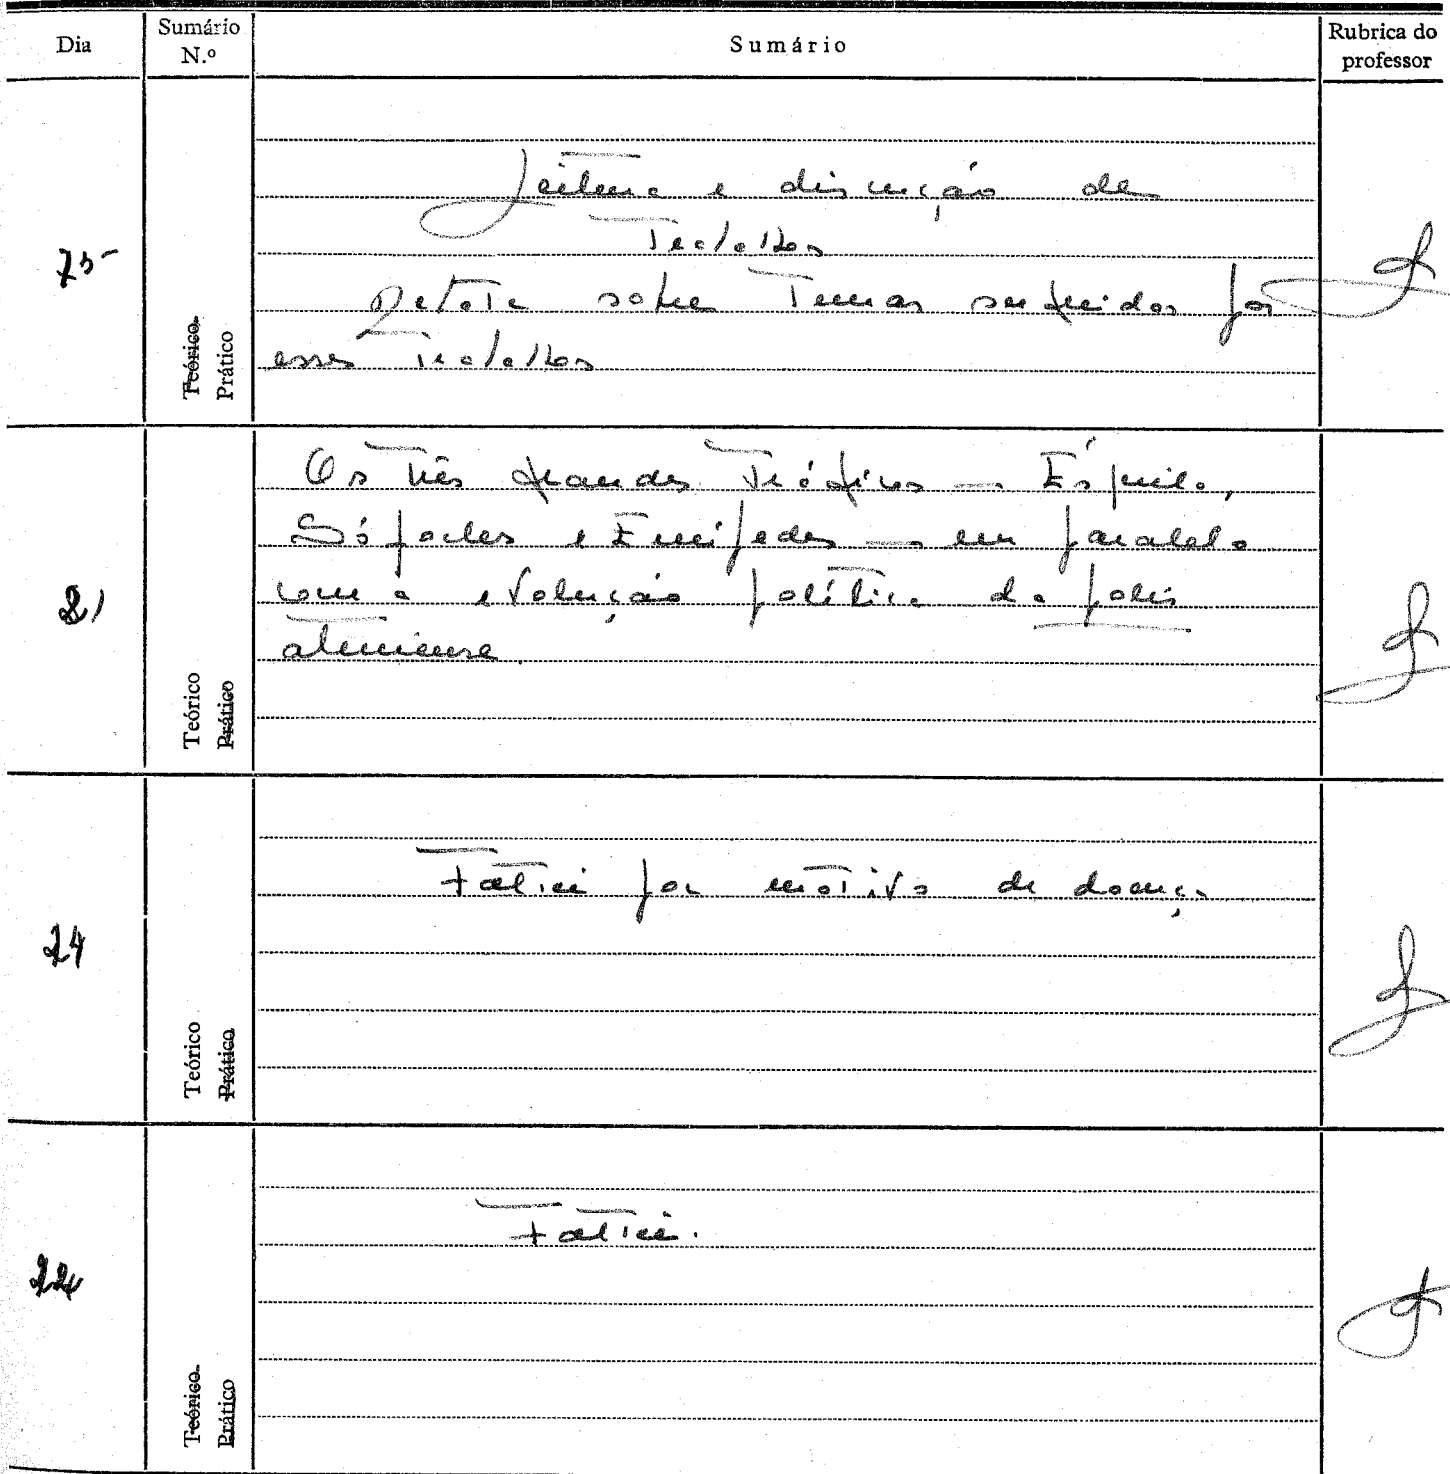 Dia
Sumário N.º
Sumário
Rubrica do professor
Leitura e discução de
Trabalhos
Debate sobre Temas sugeridos por
esses Trabalhos
Teórico
Prático
21
Os três grandes Trágicos — Ésquilo,
Sófocles e Eurípedes — em paralelo
com a evolução política da polis
ateniense.
Teórico
Prático
24
Faltei por motivo de doença
Teórico
Prático
Faltei.
Teórico
Prático